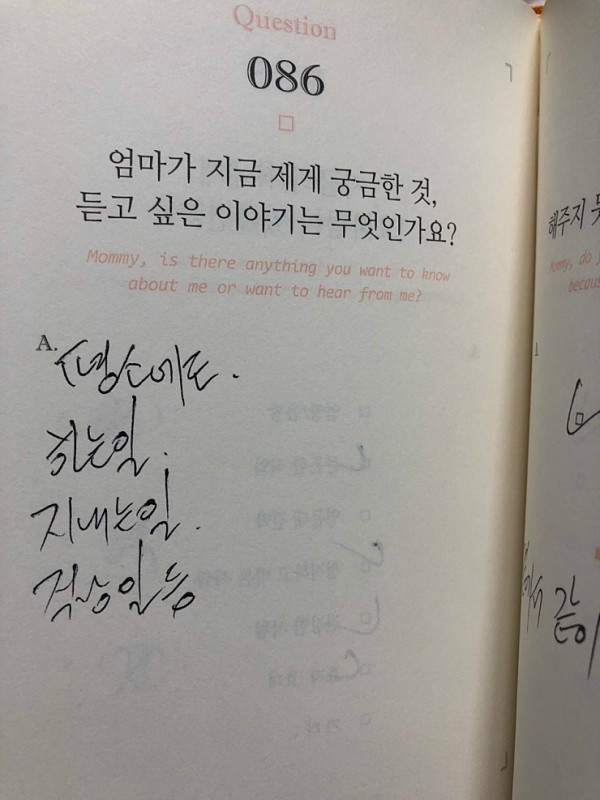 Question
086
엄마가 지금 제게 궁금한 것,
듣고 싶은 이야기는 무엇인가요?
Mommy, is there anything you want to know
about me or want to hear from me?
A.
평소에도.
하는일.
지내는일.
직장일등
해주지